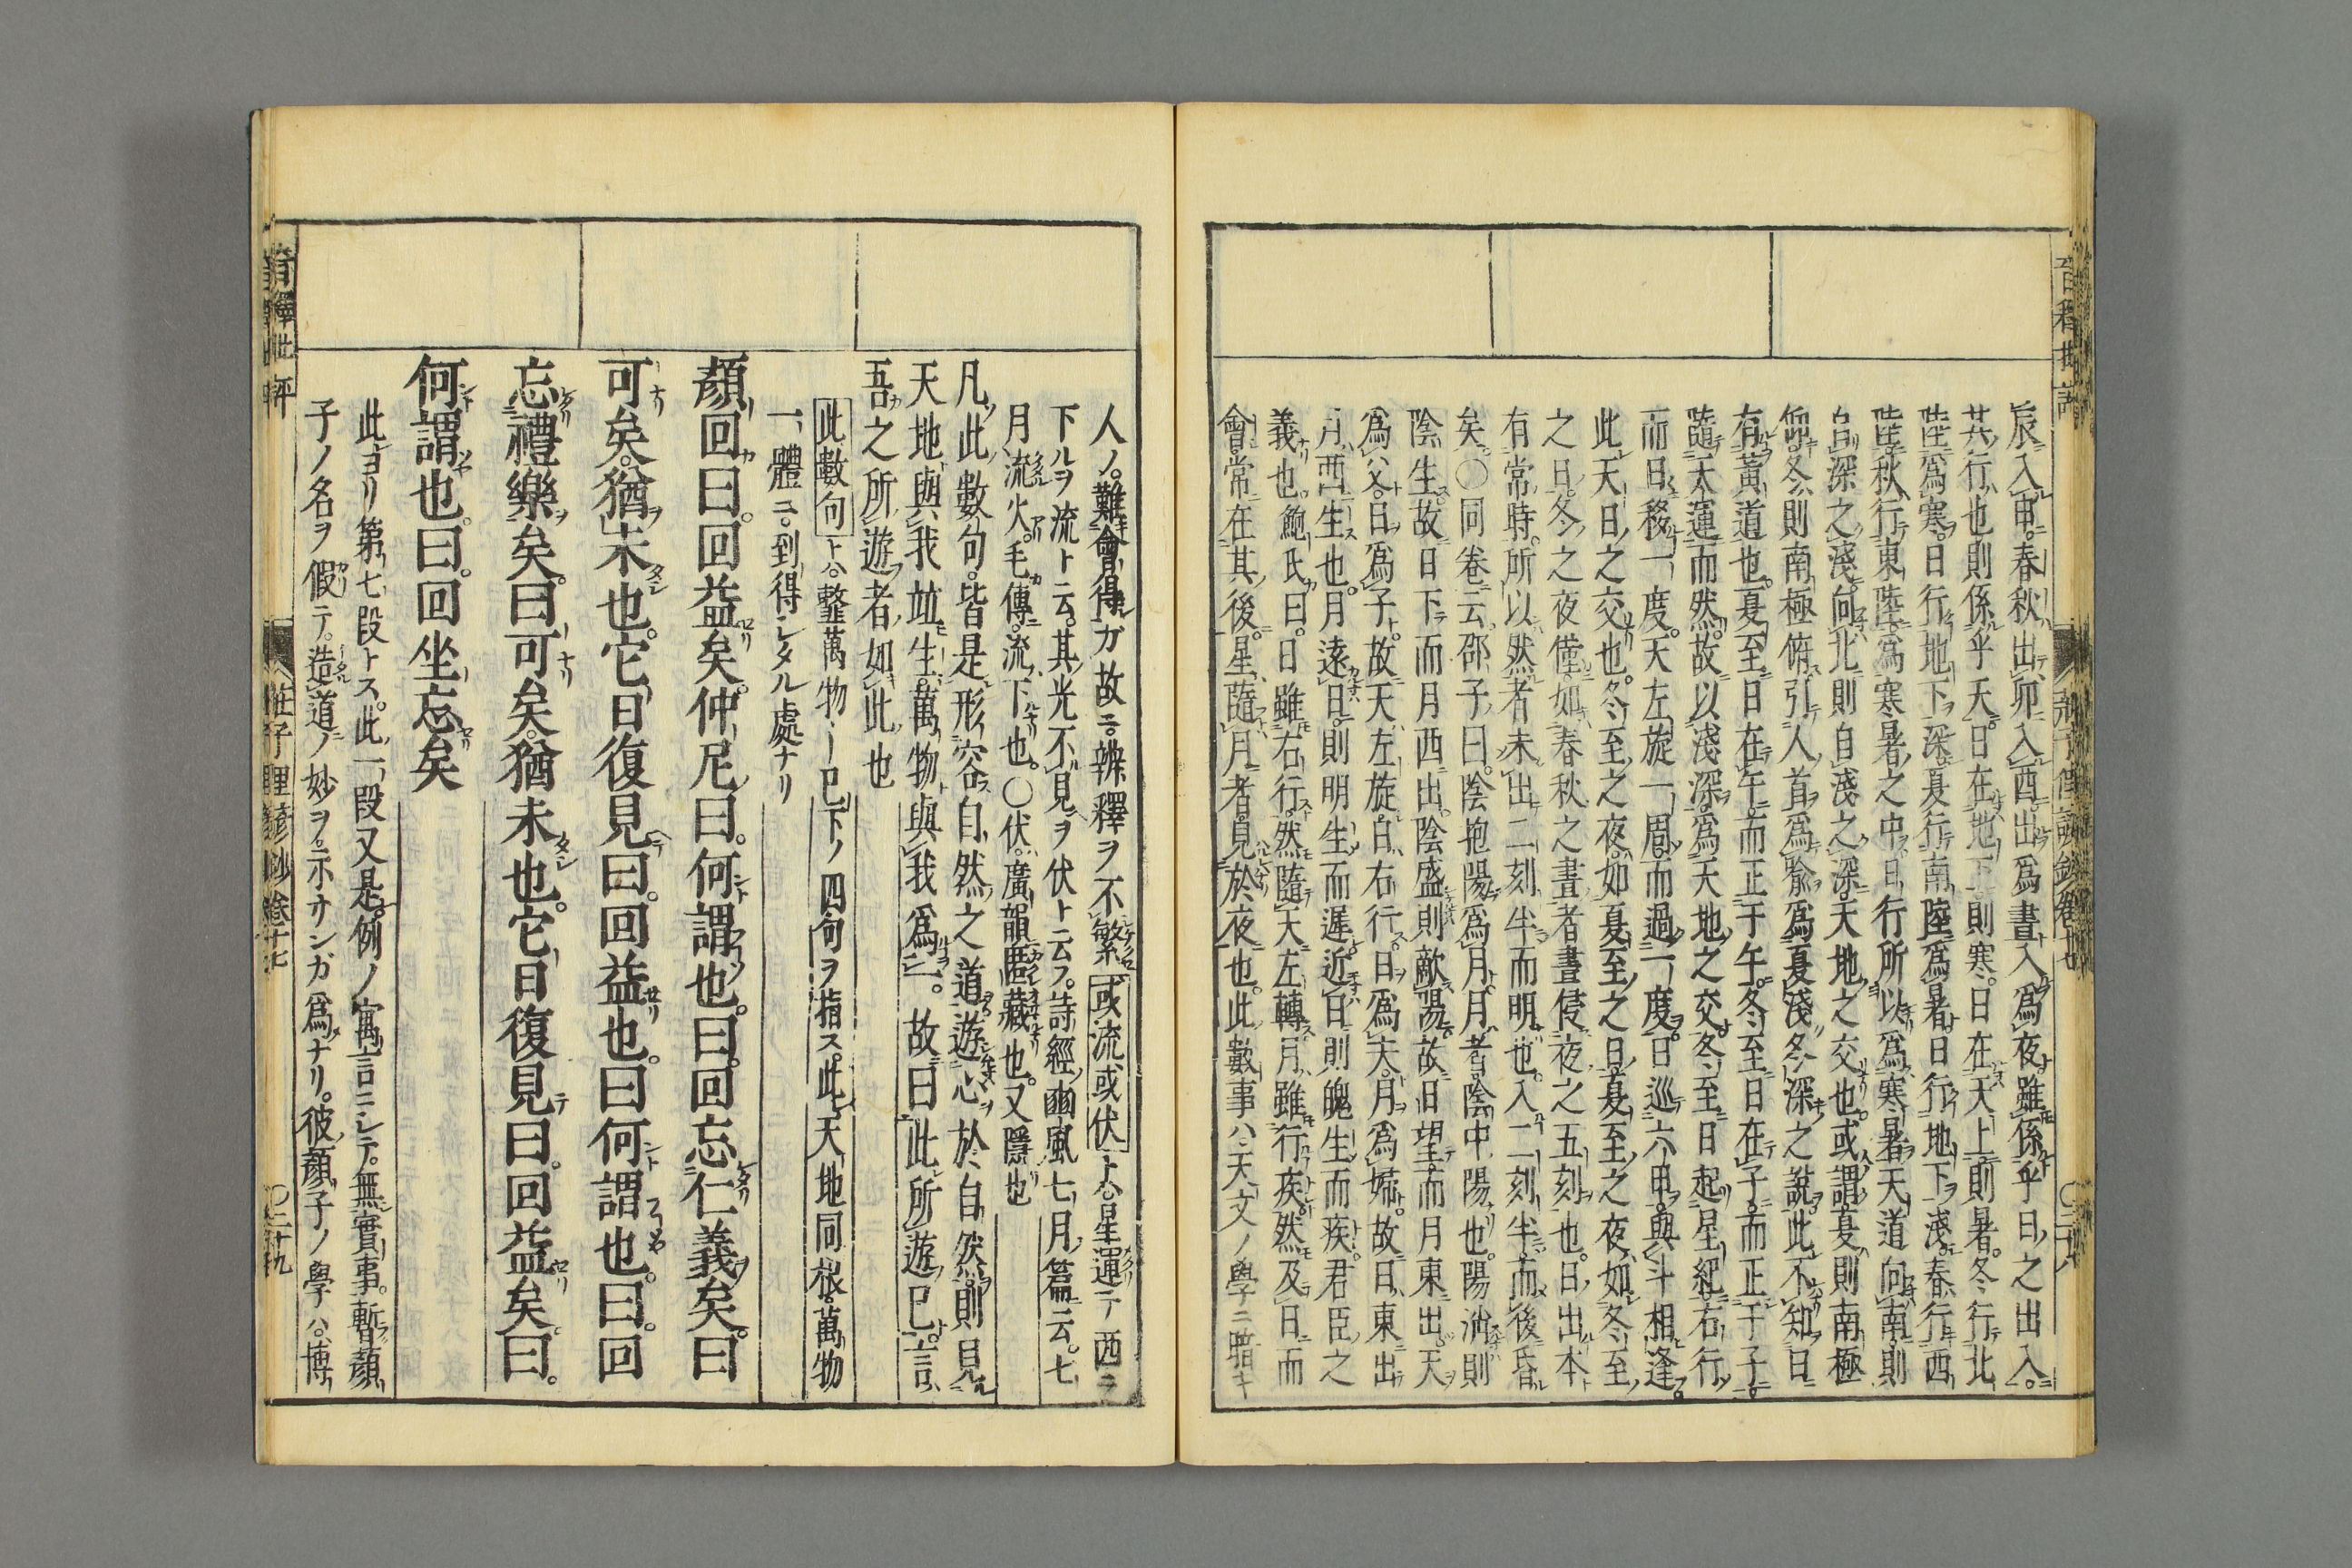 辰入申春秋出卯入酉出爲晝入爲夜雖係乎日之出入
其行也則係乎天日在地下則寒日在天上則暑冬行北
陸爲寒日行地下深夏行南陸爲暑日行地下淺春行西
陸秋行東陸爲寒暑之中日行所以爲寒暑天道向南則
自深之淺向北則自淺之深天地之交也或謂夏則南極
仰冬則南極俯引人首爲喩爲夏淺冬深之說此不知日
有黃道也夏至日在午而正于午冬至日在子而正于子
隨天運而然故以淺深爲天地之交冬至日起星紀右行
而日移一度天左旋一周而過一度日巡六甲與斗相逢
此天日之交也冬至之夜如夏至之日夏至之夜如冬至
之日冬之夜僅如春秋之晝者晝侵夜之五刻也日出本
有常時所以然者未出二刻半而明也入二刻半而後昏
矣〇同卷云邵子曰陰抱陽爲月月者陰中陽也陽消則
陰生故日下而月西出陰盛則敵陽故日望而月東出天
爲父日爲子故天左旋日右行日爲夫月爲婦故日東出
月西生也月遠日則明生而遲近日則魄生而疾君臣之
義也鮑氏曰日雖右行然隨天左轉月雖行疾然及日而
會常在其後星隨月者見於夜也此數事ハ天文ノ學ニ暗キ
人ノ難會得ガ故ニ辨釋ヲ不繁或流或伏ト八星運テ西ニ
下ルヲ流ト云其光不見ヲ伏ト云ス詩經豳風七月篇云七
月流火毛傳流下也〇伏廣韻匿藏也又隱也
凡此數句皆是形容自然之道遊心於自然則見
天地與我竝生萬物與我爲一故曰此所遊已言
吾之所遊者如此也
此數句ト八整萬物ー已下ノ四句ヲ指ス此天地同根萬物
一體ニ到得シタル處ナリ
顏回曰回益矣仲尼曰何謂也曰回忘仁義矣曰
可矣猶未也它日復見曰回益也曰何謂也曰回
忘禮樂矣曰可矣猶未也它日復見曰回益矣曰
何謂也曰回坐忘矣
此ヨリ第七段トス此一段又是例ノ寓言ニシテ無實事暫顏
子ノ名ヲ假テ造道ノ妙ヲ示サンガ爲ナリ彼顏子ノ學ハ博